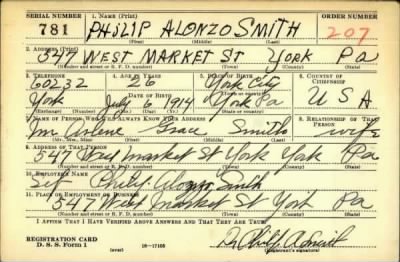 SERIAL NUMBER 1. NAME (Print) ORDER NUMBER
781 PHILIP ALONZO SMITH 207
(First) (Middle) (Last)
2. ADDRESS (Print)
547 WEST MARKET ST YORK Pa
(Number and street or R. F. D. number) (Town) (County) (State)
3. TELEPHONE 4. AGE IN YEARS 5. PLACE OF BIRTH 6. COUNTRY OF CITIZENSHIP
60232 26 York City
York July 6 1914 York Pa U S A
(Exchange) (Mo.) (Day) (Yr.) (State or country)
7. NAME OF PERSON WHO WILL ALWAYS KNOW YOUR ADDRESS 8. RELATIONSHIP OF THAT PERSON
Arlene Grace Smith wife
(First) (Middle) (Last)
9. ADDRESS OF THAT PERSON
547 West Market St York York Pa
(Number and street or R. F. D. number) (Town) (County) (State)
10. EMPLOYER'S NAME
Self Philip Alonzo Smith
11. PLACE OF EMPLOYMENT OR BUSINESS
547 West Market St York Pa
(Number and street or R. F. D. number) (Town) (County) (State)
I AFFIRM THAT I HAVE VERIFIED ABOVE ANSWERS AND THAT THEY ARE TRUE.
REGISTRATION CARD
D. S. S. Form 1 (over) 16-17105 Philip A Smith
(Registrant's signature)